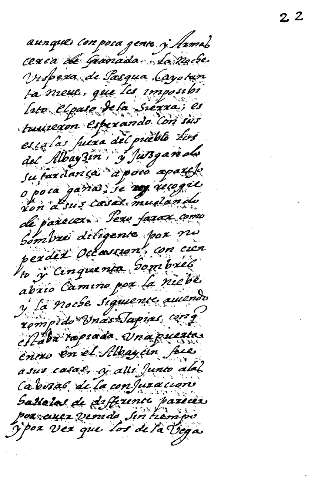 22
aunque con poca gente y Armas
cerca de Granada. La noche
Vispera de Pasqua Cayo tan
ta nieve, que les imposibi
lito el paso de la Sierra; es
tuvieron esperando con sus
escalas fuera del pueblo los
del Albayzin, y Juzgando
su tardanza a poco aparejo
o poca gana, se recogie
ron a sus casas, mudando
de parecer. Pero farax como
hombre diligente por no
perder Occassion, con cien
to y Cinquenta hombres
abrio Camino por la Niebe
y la Noche siguiente, auiendo
rompido Unas Tapias, con q
estaba tapiada Una puerta
entro en el Albaycin fue
a sus casas, y alli Junto a las
Cabezas de la conjuracion
hallolos de diferente parecer
por auer venido sin tiempo
y por ver que los de la Vega